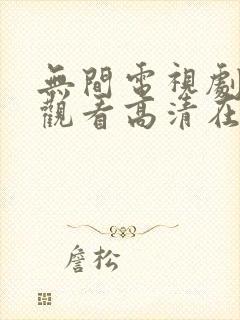 無間電視劇
觀看高清在
詹松